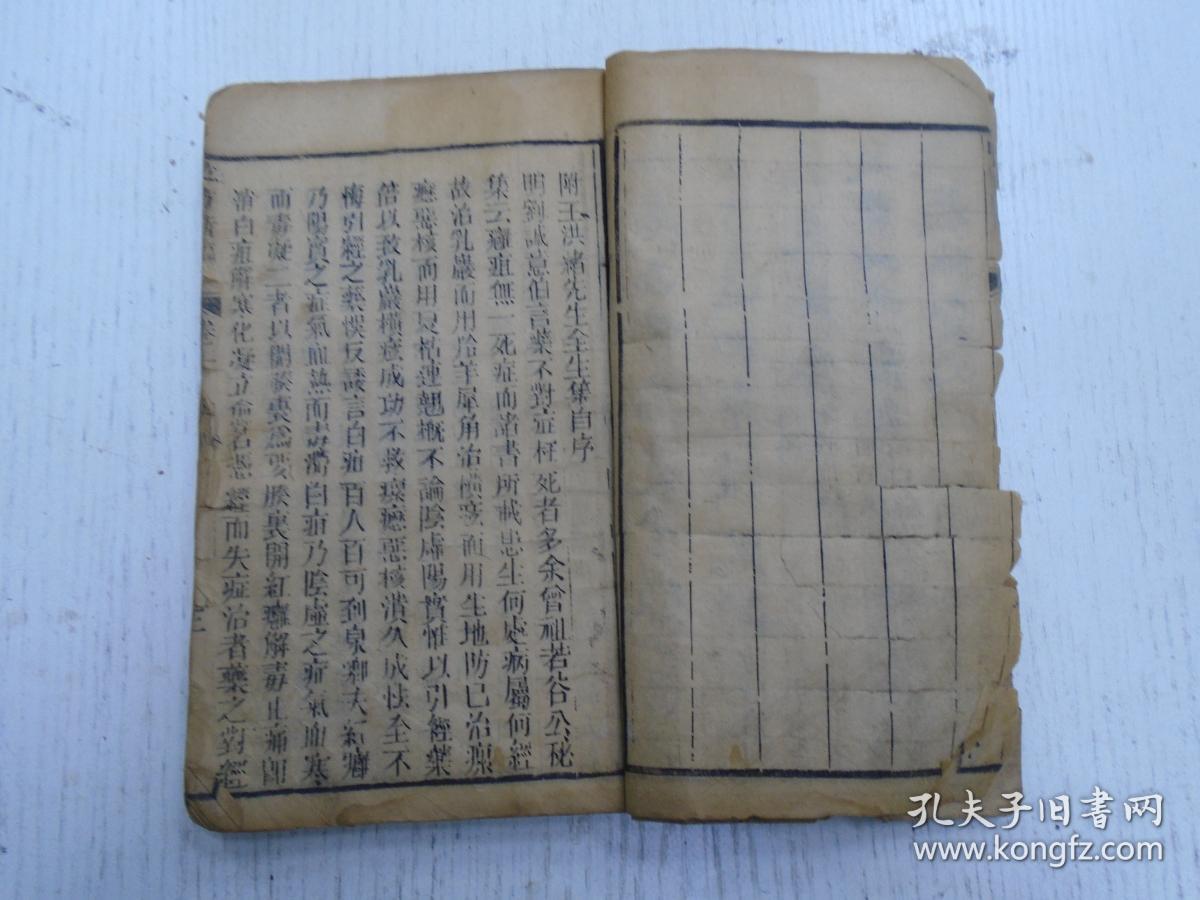 附王洪緒先生全生集自序
明劉誠意伯言藥不對症枉死者多余曾祖若谷公秘
集云癰疽無一死症而諸書所載患生何處病屬何經
故治乳巖而用羚羊犀角治橫痃而用生地防已治瘰
癧惡核而用夏枯連翹概不論陰虛陽實惟以引經藥
倍以致乳巖橫痃成功不救瘰癧惡核潰久成怯至不
悔引經之藥悞反諉言白疽百人百可到泉鄉夫紅癰
乃陽實之症氣血熱而毒滯白疽乃陰虛之症氣血寒
而毒凝二者以開腠裏為要腠裏開紅癰解毒止痛即
消白疽解寒化凝立愈若憑經而失症治者藥之對經
卷二
孔夫子旧书网
www.kongfz.com